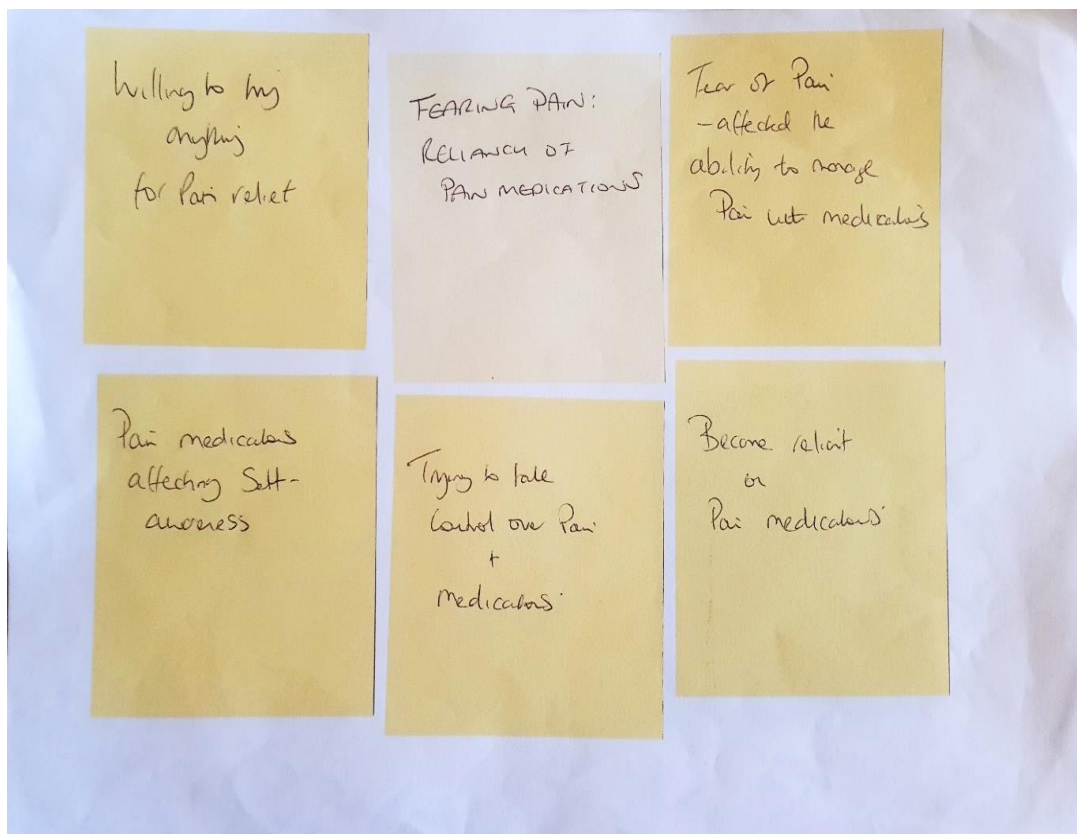 Willing to try
anything
for Pain relief
FEARING PAIN:
RELIANCY OF
PAIN MEDICATIONS
Fear of Pain
- affected the
ability to manage
Pain with medications
Pain medications
affecting Self-
awareness
Trying to take
Control over Pain
+
medications
Become reliant
on
Pain medications